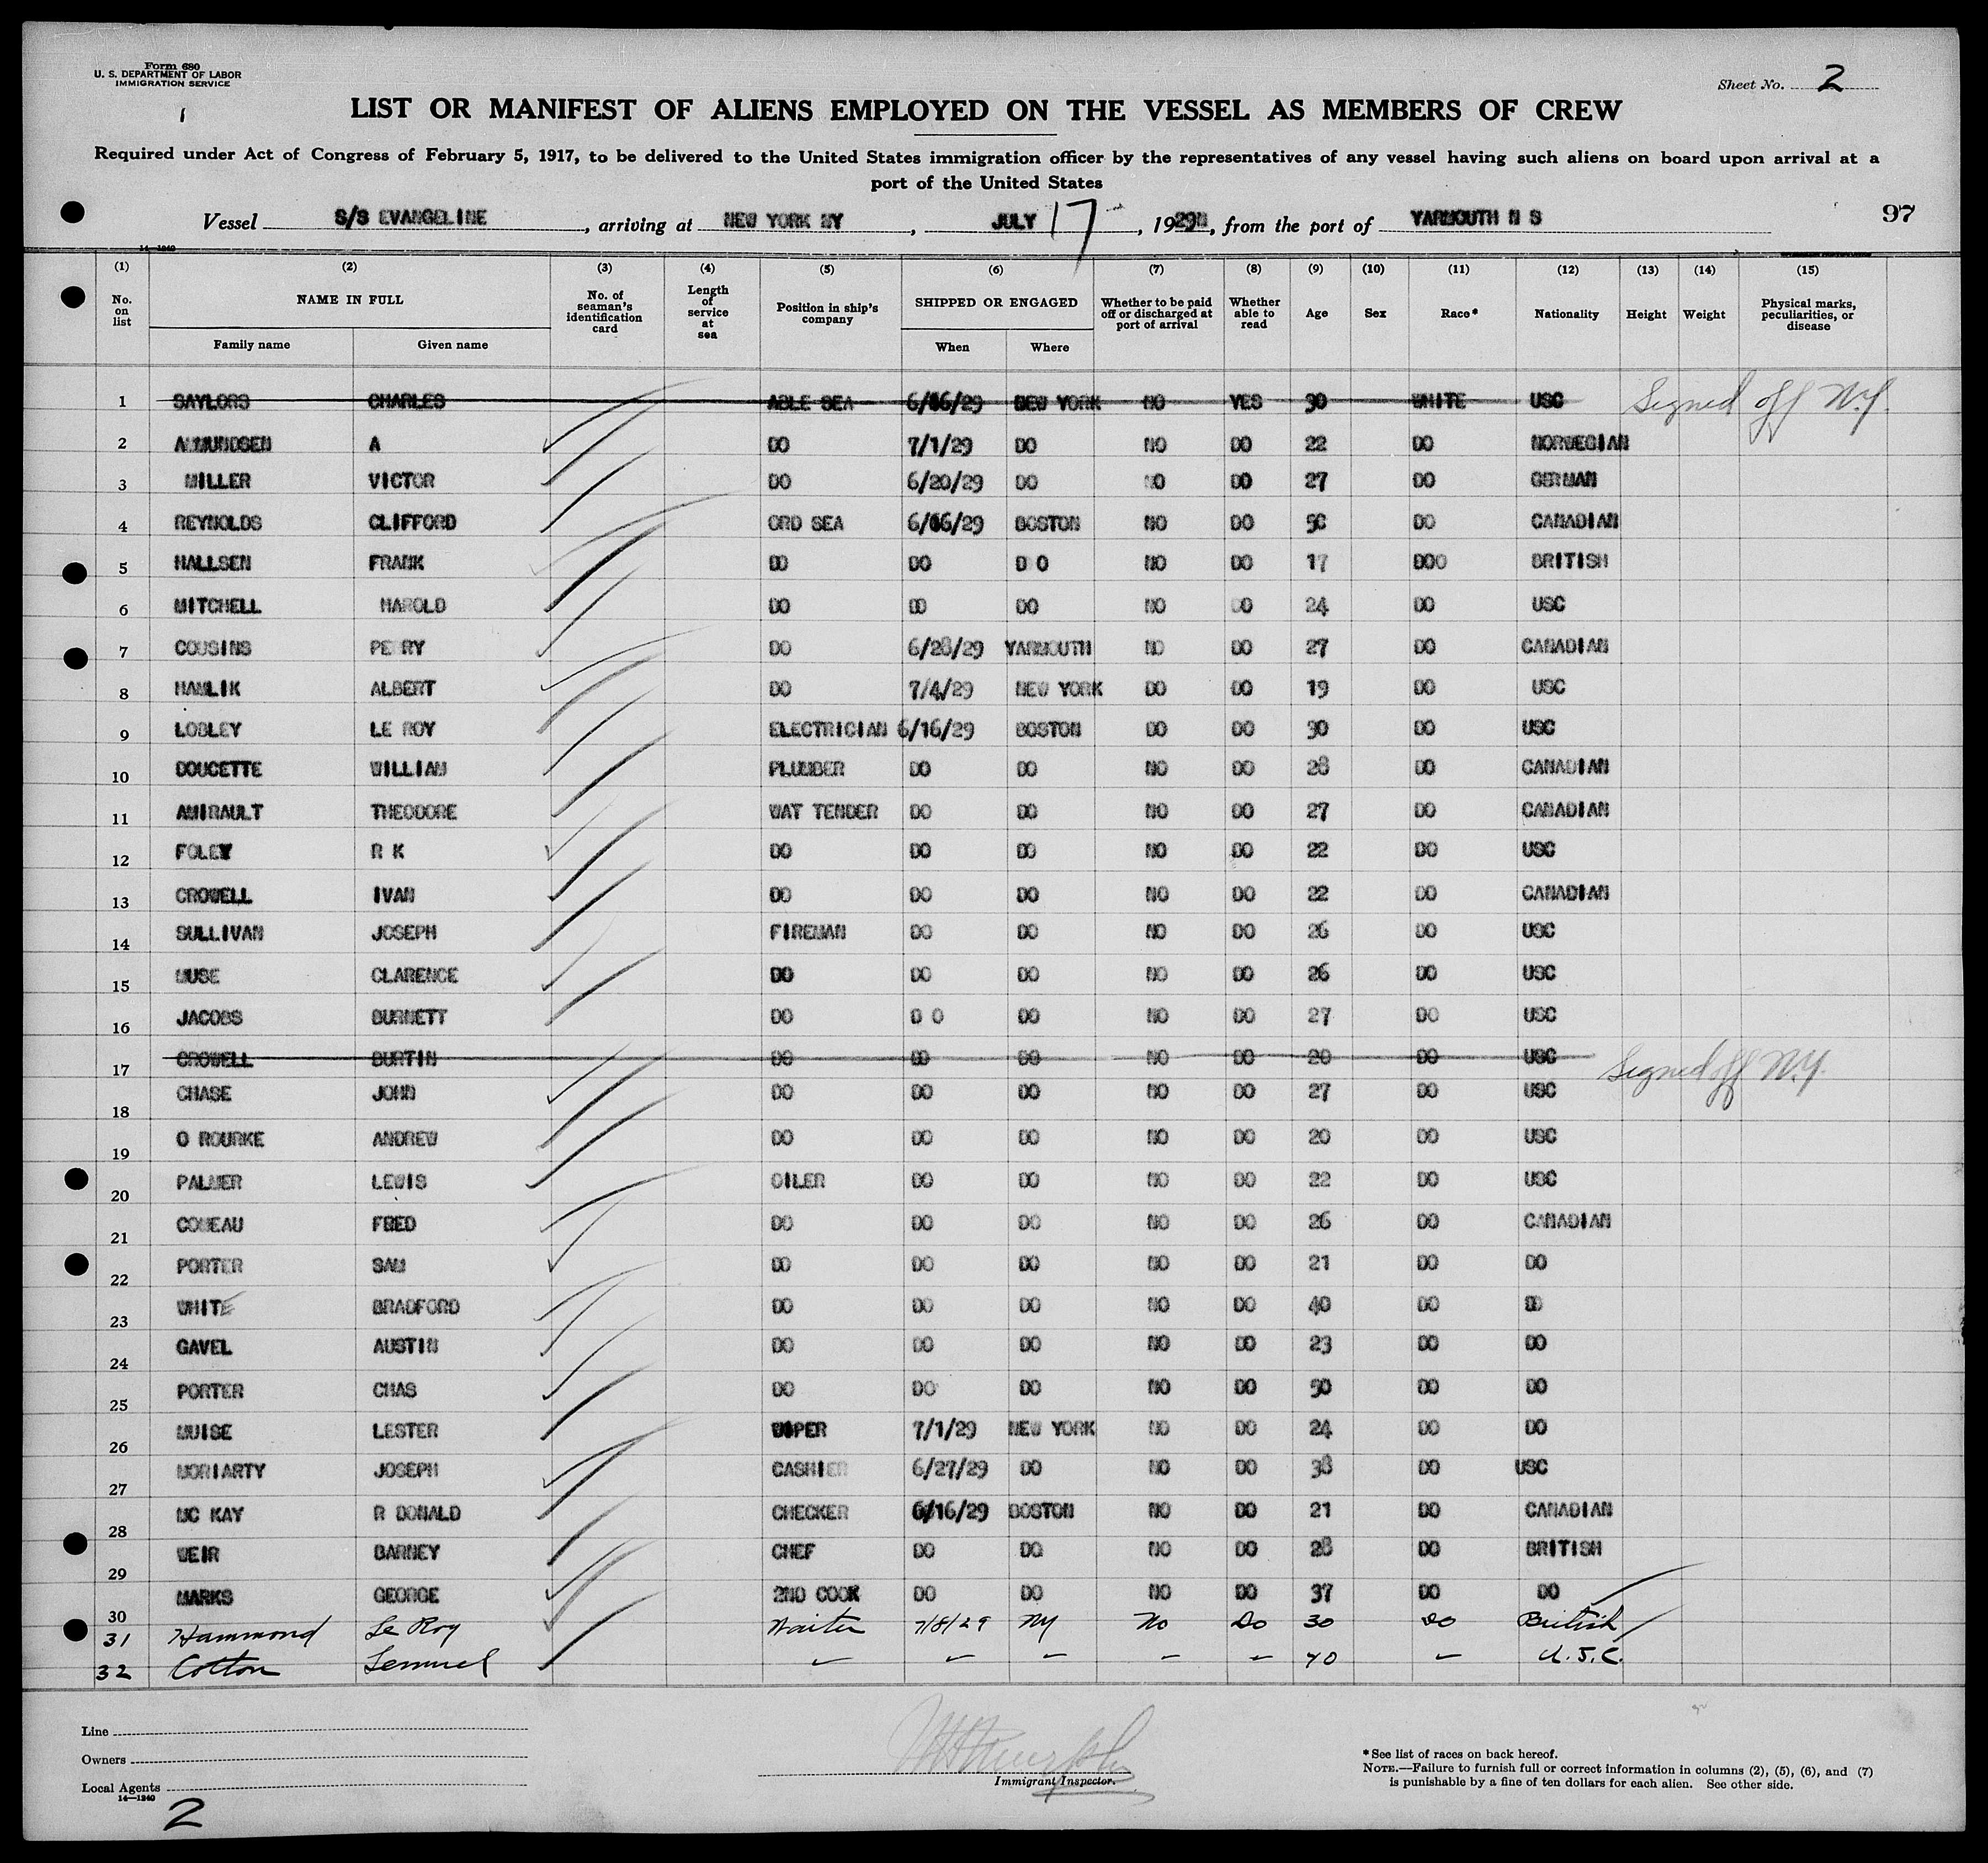 Form 680
U. S. DEPARTMENT OF LABOR
IMMIGRATION SERVICE
1
Sheet No. 2
LIST OR MANIFEST OF ALIENS EMPLOYED ON THE VESSEL AS MEMBERS OF CREW
Required under Act of Congress of February 5, 1917, to be delivered to the United States immigration officer by the representatives of any vessel having such aliens on board upon arrival at a
port of the United States
Vessel S/S EVANGELINE, arriving at NEW YORK NY, JULY 17, 1929, from the port of YARMOUTH N S 97
14—1240
(1) (2) (3) (4) (5) (6) (7) (8) (9) (10) (11) (12) (13) (14) (15)
No. on list NAME IN FULL Family name Given name No. of seaman's identification card Length of service at sea Position in ship's company SHIPPED OR ENGAGED When Where Whether to be paid off or discharged at port of arrival Whether able to read Age Sex Race* Nationality Height Weight Physical marks, peculiarities, or disease
1 SAYLORS CHARLES ABLE SEA 6/16/29 NEW YORK NO YES 30 WHITE USC Signed off N.Y.
2 AMUNDSEN A DO 7/1/29 DO NO DO 22 DO NORWEGIAN
3 MILLER VICTOR DO 6/20/29 DO NO DO 27 DO GERMAN
4 REYNOLDS CLIFFORD ORD SEA 6/16/29 BOSTON NO DO 50 DO CANADIAN
5 HALLSEN FRANK DO DO D O NO DO 17 DOO BRITISH
6 MITCHELL HAROLD DO DO DO NO DO 24 DO USC
7 COUSINS PERRY DO 6/28/29 YARMOUTH NO DO 27 DO CANADIAN
8 HAMLIK ALBERT DO 7/4/29 NEW YORK DO DO 19 DO USC
9 LOBLEY LE ROY ELECTRICIAN 6/16/29 BOSTON DO DO 30 DO USC
10 DOUCETTE WILLIAM PLUMBER DO DO NO DO 28 DO CANADIAN
11 AMIRAULT THEODORE WAT TENDER DO DO NO DO 27 DO CANADIAN
12 FOLEY R K DO DO DO NO DO 22 DO USC
13 CROWELL IVAN DO DO DO NO DO 22 DO CANADIAN
14 SULLIVAN JOSEPH FIREMAN DO DO NO DO 26 DO USC
15 MUSE CLARENCE DO DO DO NO DO 26 DO USC
16 JACOBS BURNETT DO D O DO NO DO 27 DO USC
17 CROWELL BURTIN DO DO DO NO DO 20 DO USC Signed off N.Y.
18 CHASE JOHN DO DO DO NO DO 27 DO USC
19 O ROURKE ANDREW DO DO DO NO DO 20 DO USC
20 PALMER LEWIS OILER DO DO NO DO 22 DO USC
21 COMEAU FRED DO DO DO NO DO 26 DO CANADIAN
22 PORTER SAM DO DO DO NO DO 21 DO DO
23 WHITE BRADFORD DO DO DO NO DO 40 DO DO
24 GAVEL AUSTIN DO DO DO NO DO 23 DO DO
25 PORTER CHAS DO DO DO NO DO 50 DO DO
26 MUISE LESTER WIPER 7/1/29 NEW YORK NO DO 24 DO DO
27 MORIARTY JOSEPH CASHIER 6/27/29 DO NO DO 38 DO USC
28 MC KAY R DONALD CHECKER 6/16/29 BOSTON NO DO 21 DO CANADIAN
29 WEIR BARNEY CHEF DO DO NO DO 28 DO BRITISH
30 MARKS GEORGE 2ND COOK DO DO NO DO 37 DO DO
31 Hammond Le Roy Waiter 7/8/29 NY No Do 30 Do British
32 Cotton Lemuel 40 U.S.C.
Line
Owners
Local Agents
14—1240
2
Immigrant Inspector.
*See list of races on back hereof.
NOTE.—Failure to furnish full or correct information in columns (2), (5), (6), and (7)
is punishable by a fine of ten dollars for each alien. See other side.